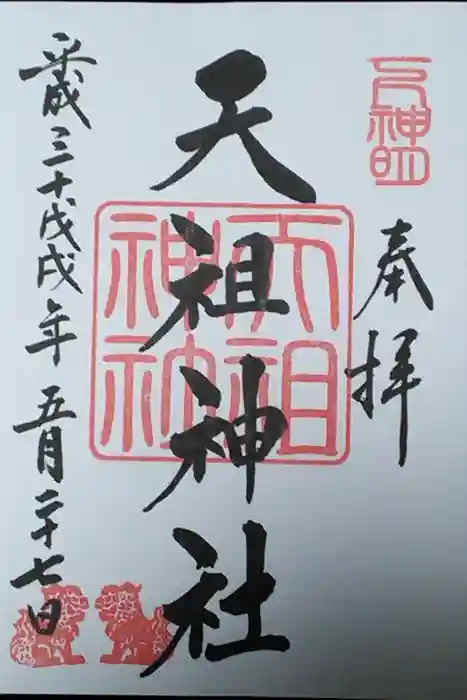 奉拝
天祖神社
平成三十戊戌年五月二十七日
天祖神社